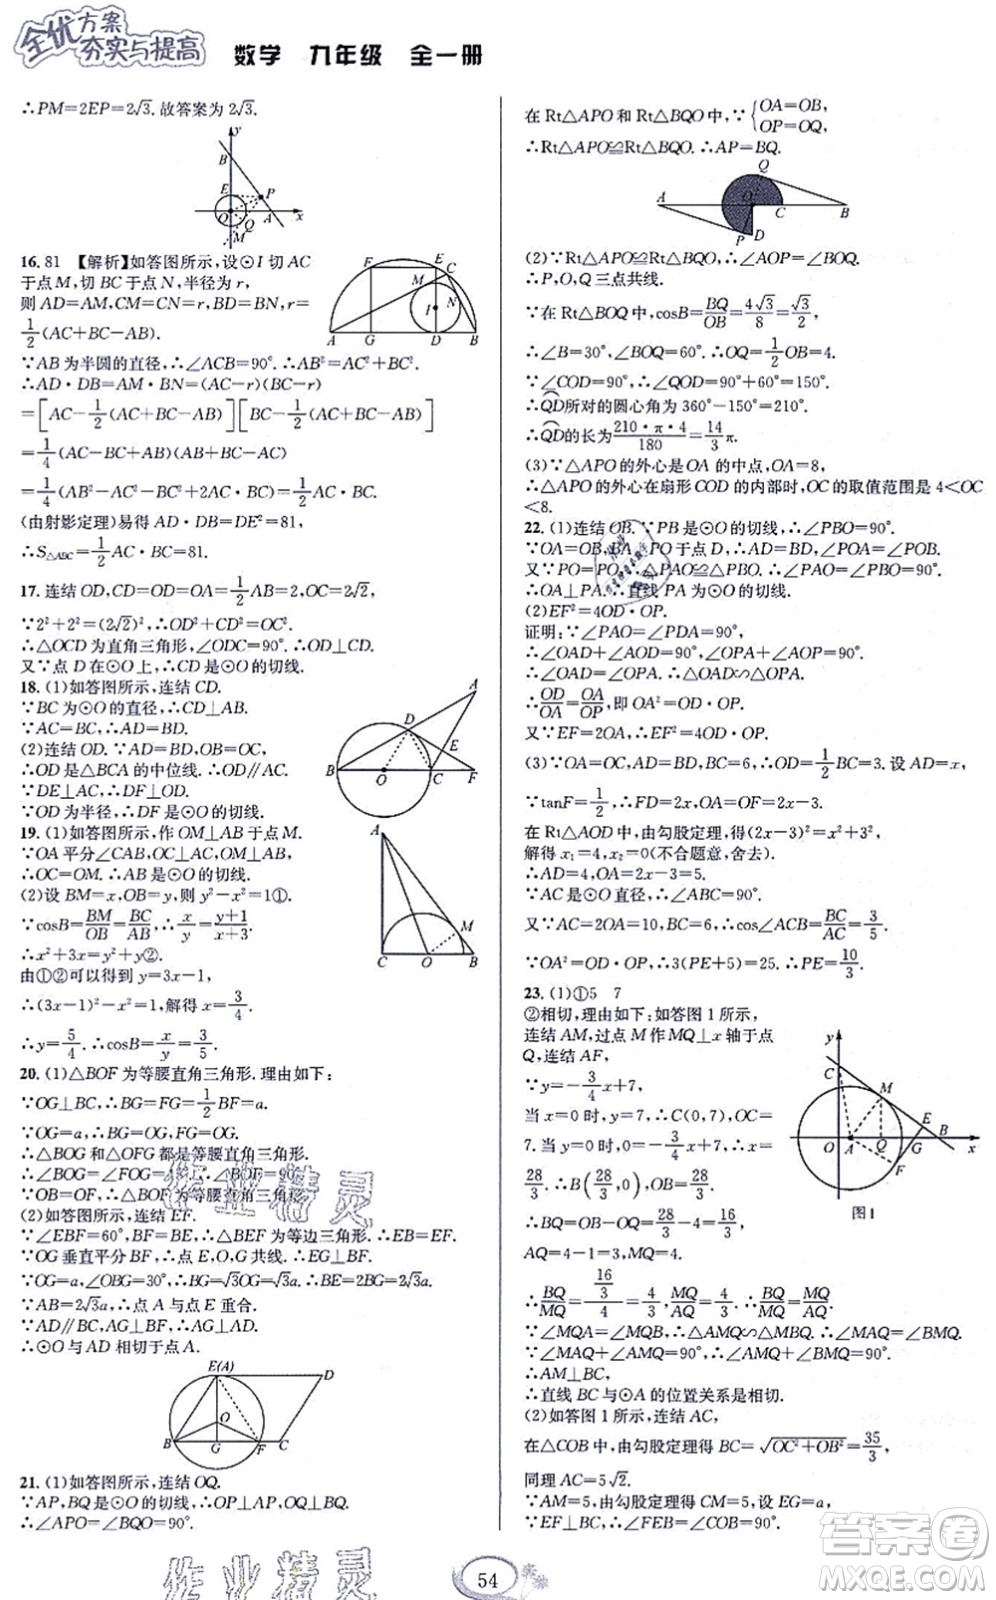 全优方案
夯实与提高
数学 九年级 全一册
∴PM=2EP=2√3.故答案为2√3.
y
B
E
P
O
Q
A
x
M
16.81 【解析】如答图所示,设⊙I切AC
于点M,切BC于点N,半径为r,
则AD=AM,CM=CN=r,BD=BN=
1/2(AC+BC-AB)
F
E
C
M
N
I
A
G
D
B
∵AB为半圆的直径,∴∠ACB=90°.∴AB²=AC²+BC².
∴AD·DB=AM·BN=(AC-r)(BC-r)
=[AC-1/2(AC+BC-AB)][BC-1/2(AC+BC-AB)]
=1/4(AC-BC+AB)(BC+AB-AC)
=1/4(AB²-AC²-BC²+2AC·BC)=1/2AC·BC.
(由射影定理)易得AD·DB=DE²=81,
∴S△ABC=1/2AC·BC=81.
17.连结OD,CD=OD=OA=1/2AB=2,OC=2√2,
∵2²+2²=(2√2)²,∴OD²+CD²=OC²,
∴△OCD为直角三角形,∠ODC=90°.∴OD⊥CD.
又∵点D在⊙O上,∴CD是⊙O的切线.
18.(1)如答图所示,连结CD.
∵BC为⊙O的直径,∴CD⊥AB.
∵AC=BC,∴AD=BD.
(2)连结OD.∵AD=BD,OB=OC,
∴OD是△BCA的中位线.∴OD∥AC.
∵DE⊥AC,∴DF⊥OD.
∵OD为半径,∴DF是⊙O的切线.
A
D
E
B
O
C
F
19.(1)如答图所示,作OM⊥AB于点M.
∵OA平分∠CAB,OC⊥AC,OM⊥AB,
∴OC=OM.∴AB是⊙O的切线.
(2)设BM=x,OB=y,则y²-x²=1①.
∵cosB=BM/OB=BC/AB,∴x/y=y+1/x+3.
∴x²+3x=y²+y②.
由①②可以得到y=3x-1,
∴(3x-1)²-x²=1,解得x=3/4.
∴y=5/4.∴cosB=x/y=3/5.
A
M
C
O
B
20.(1)△BOF为等腰直角三角形.理由如下:
∵OG⊥BC,∴BG=FG=1/2BF=a.
∵OG=a,∴BG=FG=OG.
∴△BOG和△OFG都是等腰直角三角形.
∴∠BOG=∠FOG=45°.∴∠BOF=90°.
∵OB=OF,∴△BOF为等腰直角三角形.
(2)如答图所示,连结EF.
∵∠EBF=60°,BF=BE,∴△BEF为等边三角形.
∵OG垂直平分BF,∴点E,O,G共线.
∵OG=a,∠OBG=30°,∴BG=√3OG=√3a.∴BE=2BG=2√3a.
∵AB=2√3a,∴点A与点E重合.
∵AD∥BC,AG⊥BF,∴AG⊥AD.
∴⊙O与AD相切于点A.
E(A)
D
O
B
G
F
C
21.(1)如答图所示,连结OQ.
∵AP,BQ是⊙O的切线,∴OP⊥AP,OQ⊥BQ.
∴∠APO=∠BQO=90°.
在Rt△APO和Rt△BQO中,∵{OA=OB,
OP=OQ,
∴Rt△APO≌Rt△BQO.∴AP=BQ.
Q
A
O
C
B
P
D
(2)∵Rt△APO≌Rt△BQO,∴∠AOP=∠BOQ.
∴P,O,Q三点共线.
∵在Rt△BOQ中,cosB=BQ/OB=4√3/8=√3/2,
∴∠B=30°,∠BOQ=60°.∴OQ=1/2OB=4.
∵∠COD=90°,∴∠QOD=90°+60°=150°.
∴QD所对的圆心角为360°-150°=210°.
∴QD的长为210·π·4/180=14/3π.
(3)∵△APO的外心是OA的中点,OA=8,
∴△APO的外心在扇形COD的内部时,OC的取值范围是4<OC
<8.
22.(1)连结OB.∵PB是⊙O的切线,∴∠PBO=90°.
∵OA=OB,BA⊥PO于点D,∴AD=BD,∠POA=∠POB.
又∵PO=PO,∴△PAO≌△PBO.∴∠PAO=∠PBO=90°.
∴OA⊥PA.∴直线PA为⊙O的切线.
(2)EF²=4OD·OP.
证明:∵∠PAO=∠PDA=90°,
∴∠OAD+∠AOD=90°,∠OPA+∠AOP=90°.
∴∠OAD=∠OPA.∴△OAD∽△OPA.
∴OD/OA=OA/OP,即OA²=OD·OP.
又∵EF=2OA,∴EF²=4OD·OP.
(3)∵OA=OC,AD=BD,BC=6,∴OD=1/2BC=3.设AD=x,
∵tanF=1/2,∴FD=2x,OA=OF=2x-3.
在Rt△AOD中,由勾股定理,得(2x-3)²=x²+3²,
解得x₁=4,x₂=0(不合题意,舍去).
∴AD=4,OA=2x-3=5.
∵AC是⊙O直径,∴∠ABC=90°.
又∵AC=2OA=10,BC=6,∴cos∠ACB=BC/AC=3/5.
∵OA²=OD·OP,∴3(PE+5)=25.∴PE=10/3.
23.(1)①5 7
②相切,理由如下:如答图1所示,
连结AM,过点M作MQ⊥x轴于点
Q,连结AF,
∵y=-3/4x+7,
当x=0时,y=7,∴C(0,7),BC=
7.当y=0时,0=-3/4x+7,x=
28/3.∴B(28/3,0),OB=28/3.
∴BQ=OB-OQ=28/3-4=16/3,
AQ=4-1=3.
y
C
M
E
B
O
A
Q
G
x
F
图1
∴BQ/MQ=16/3/4=4/3,MQ/AQ=4/3.∴BQ/MQ=MQ/AQ.
∵∠MQA=∠MQB,∴△AMQ∽△MBQ.∴∠MAQ=∠BMQ.
∵∠MAQ+∠AMQ=90°,∴∠BMQ+∠AMQ=90°,
∴AM⊥BC.
∴直线BC与⊙A的位置关系是相切.
(2)如答图1所示,连结AC,
在△COB中,由勾股定理得BC=√OC²+OB²=35/3,
同理AC=5√2.
∵AM=5,由勾股定理得CM=5,设EG=a,
∵EF⊥BC,∴∠FEB=∠FEC=90°.
作业精灵
作业精灵
54
答案圈
MXQE.COM